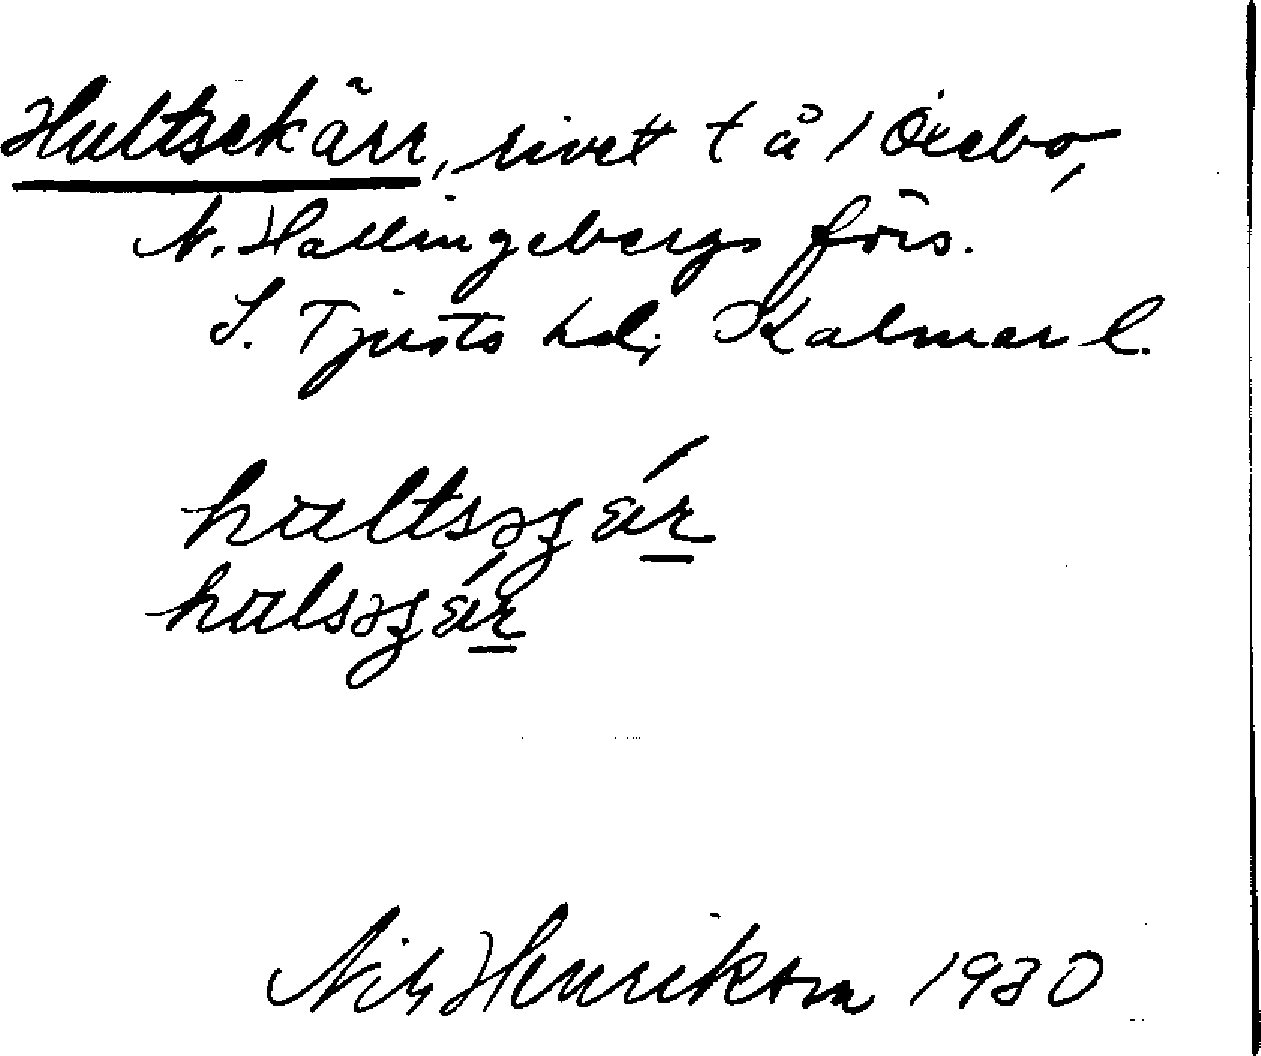 Hultsekärr, rivet t å 1 Örebo,
N. Hallingebergs förs.
S. Tjusts hd; Kalmar l.
hultsəʒä́r
hulsəʒä́r
Nils Henrikson 1930